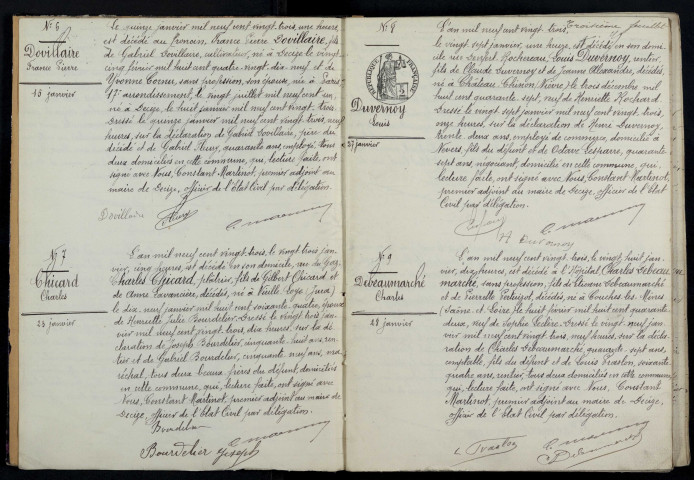 N° 6
Dovillaire
France Pierre
15 janvier
Le quinze janvier mil neuf cent vingt trois, une heure,
est décédé au France Pierre Dovillaire, fils
de Gabriel Dovillaire, cultivateur, né à Decize le vingt
cinq février mil huit cent quatre-vingt dix neuf et de
Yvonne sans profession, son épouse, née à Paris
17e arrondissement, le vingt juillet mil neuf cent un,
né à Decize, le huit janvier mil neuf cent vingt trois.
Dressé le quinze janvier mil neuf cent vingt trois, neuf
heures, sur la déclaration de Gabriel Dovillaire, père du
décédé et de Gabriel quarante ans, employé, tous
deux domiciliés en cette commune, qui, lecture faite, ont
signé avec Nous, Constant Martinot, premier adjoint au
maire de Decize, officier de l'Etat Civil par délégation.
Dovillaire
N° 7
Chicard
Charles
23 janvier
L'an mil neuf cent vingt trois, le vingt trois jan-
vier, cinq heures, est décédé en son domicile, rue du Gaz,
Charles Chicard, plâtrier, fils de Gilbert Chicard et
de Anne décédés, né à Vieille Loye, Jura,
le dix neuf janvier mil huit cent soixante quatre, époux
de Henriette Julie Bourdelier. Dressé le vingt trois jan-
vier mil neuf cent vingt trois, dix heures, sur la dé-
claration de Joseph Bourdelier, cinquante huit ans, ren-
tier et de Gabriel Bourdelier, cinquante neuf ans, ma-
réchal, tous deux beaux frères du défunt, domiciliés
en cette commune, qui, lecture faite, ont signé avec
Nous, Constant Martinot, premier adjoint au maire de
Decize, officier de l'Etat Civil par délégation.
Bourdelier
Bourdelier Joseph
Troisième feuillet
N° 8
REPUBLIQUE FRANÇAISE
Duvernoy
Louis
27 janvier
L'an mil neuf cent vingt trois,
le vingt sept janvier, une heure, est décédé en son domi-
cile rue Denfert Rochereau, Louis Duvernoy, rentier,
fils de Claude Duvernoy et de Jeanne Alexandre, décédés,
né à Château Chinon (Nièvre) le trois décembre mil
huit cent quarante sept, veuf de Henriette Rochard.
Dressé le vingt sept janvier mil neuf cent vingt trois,
onze heures, sur la déclaration de Duvernoy,
trente deux ans, employé de commerce, domicilié à
Nevers, fils du défunt et de Octave quarante
sept ans, négociant, domicilié en cette commune, qui,
lecture faite, ont signé avec Nous, Constant Martinot,
premier adjoint au maire de Decize, officier de l'Etat
Civil par délégation.
Duvernoy
N° 9
Debeaumarché
Charles
28 janvier
L'an mil neuf cent vingt trois, le vingt huit jan-
vier, dix heures, est décédé à l'hôpital Charles Debeau-
marché, sans profession, fils de Etienne Debeaumarché
et de Pierrette décédés, né à Couches les Mines
(Saône et Loire), le huit février mil huit cent quarante
deux, veuf de Sophie Leclerc. Dressé le vingt neuf jan-
vier mil neuf cent vingt trois, neuf heures, sur la décla-
ration de Charles Debeaumarché, quarante sept ans,
comptable, fils du défunt et de Louis soixante
quatre ans, rentier, tous deux domiciliés en cette commune
qui, lecture faite, ont signé avec Nous, Constant
Martinot, premier adjoint au maire de Decize,
officier de l'Etat Civil par délégation.